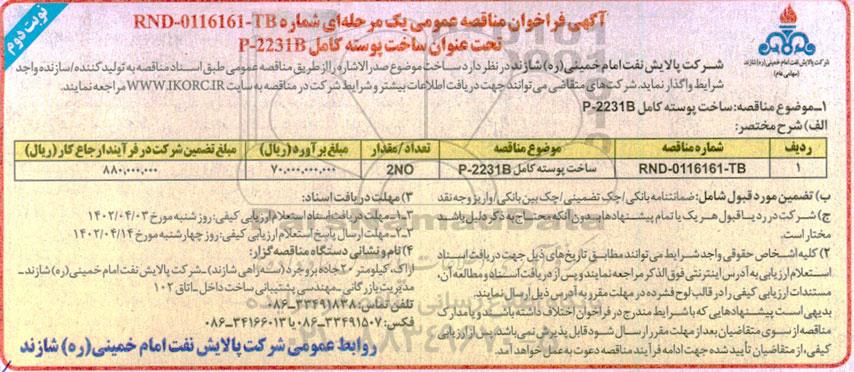 نوبت دوم
آگهی فراخوان مناقصه عمومی یک مرحله‌ای شماره RND-0116161-TB
تحت عنوان ساخت پوسته کامل P-2231B
شرکت پالایش نفت امام خمینی (ره) شازند
(سهامی عام)
شرکت پالایش نفت امام خمینی (ره) شازند در نظر دارد ساخت موضوع صدرالاشاره را از طریق مناقصه عمومی طبق اسناد مناقصه به تولید کننده/سازنده واجد
شرایط واگذار نماید. شرکت‌های متقاضی می‌توانند جهت دریافت اطلاعات بیشتر و شرایط شرکت در مناقصه به سایت WWW.IKORC.IR مراجعه نمایند.
۱ـ موضوع مناقصه: ساخت پوسته کامل P-2231B
الف) شرح مختصر:
ردیف شماره مناقصه موضوع مناقصه تعداد/مقدار مبلغ برآورد (ریال) مبلغ تضمین شرکت در فرآیند ارجاع کار (ریال)
۱ RND-0116161-TB ساخت پوسته کامل P-2231B 2NO ۷۰,۰۰۰,۰۰۰,۰۰۰ ۸۸۰,۰۰۰,۰۰۰
ب) تضمین مورد قبول شامل: ضمانتنامه بانکی/چک تضمینی/چک بین بانکی/واریز وجه نقد
ج) شرکت در رد یا قبول هر یک یا تمام پیشنهادها بدون آنکه محتاج به ذکر دلیل باشد
مختار است.
۲) کلیه اشخاص حقوقی واجد شرایط می‌توانند مطابق تاریخ‌های ذیل جهت دریافت اسناد
استعلام ارزیابی به آدرس اینترنتی فوق الذکر مراجعه نمایند و پس از دریافت اسناد و مطالعه آن،
مستندات ارزیابی کیفی را در قالب لوح فشرده در مهلت مقرر به آدرس ذیل ارسال نمایند.
بدیهی است پیشنهادهایی که با شرایط مندرج در فراخوان اختلاف داشته باشند و یا مدارک
مناقصه از سوی متقاضیان بعد از مهلت مقرر ارسال شود قابل پذیرش نمی‌باشد. پس از ارزیابی
کیفی، از متقاضیان تأیید شده جهت ادامه فرآیند مناقصه دعوت به عمل خواهد آمد.
۳) مهلت دریافت اسناد:
۱-۲- مهلت دریافت اسناد استعلام ارزیابی کیفی: روز شنبه مورخ ۱۴۰۲/۰۴/۰۳
۲-۲- مهلت ارسال پاسخ استعلام ارزیابی کیفی: روز چهارشنبه مورخ ۱۴۰۲/۰۴/۱۴
۴) نام و نشانی دستگاه مناقصه گزار:
اراک، کیلومتر ۲۰ جاده بروجرد (سه راهی شازند) ـ شرکت پالایش نفت امام خمینی (ره) شازند ـ
مدیریت بازرگانی ـ مهندسی پشتیبانی ساخت داخل ـ اتاق ۱۰۲
تلفن تماس: ۳۳۴۹۱۸۳۸-۰۸۶
فکس: ۳۳۴۹۱۵۰۷-۰۸۶ یا ۳۴۱۶۶۰۱۳-۰۸۶
روابط عمومی شرکت پالایش نفت امام خمینی (ره) شازند